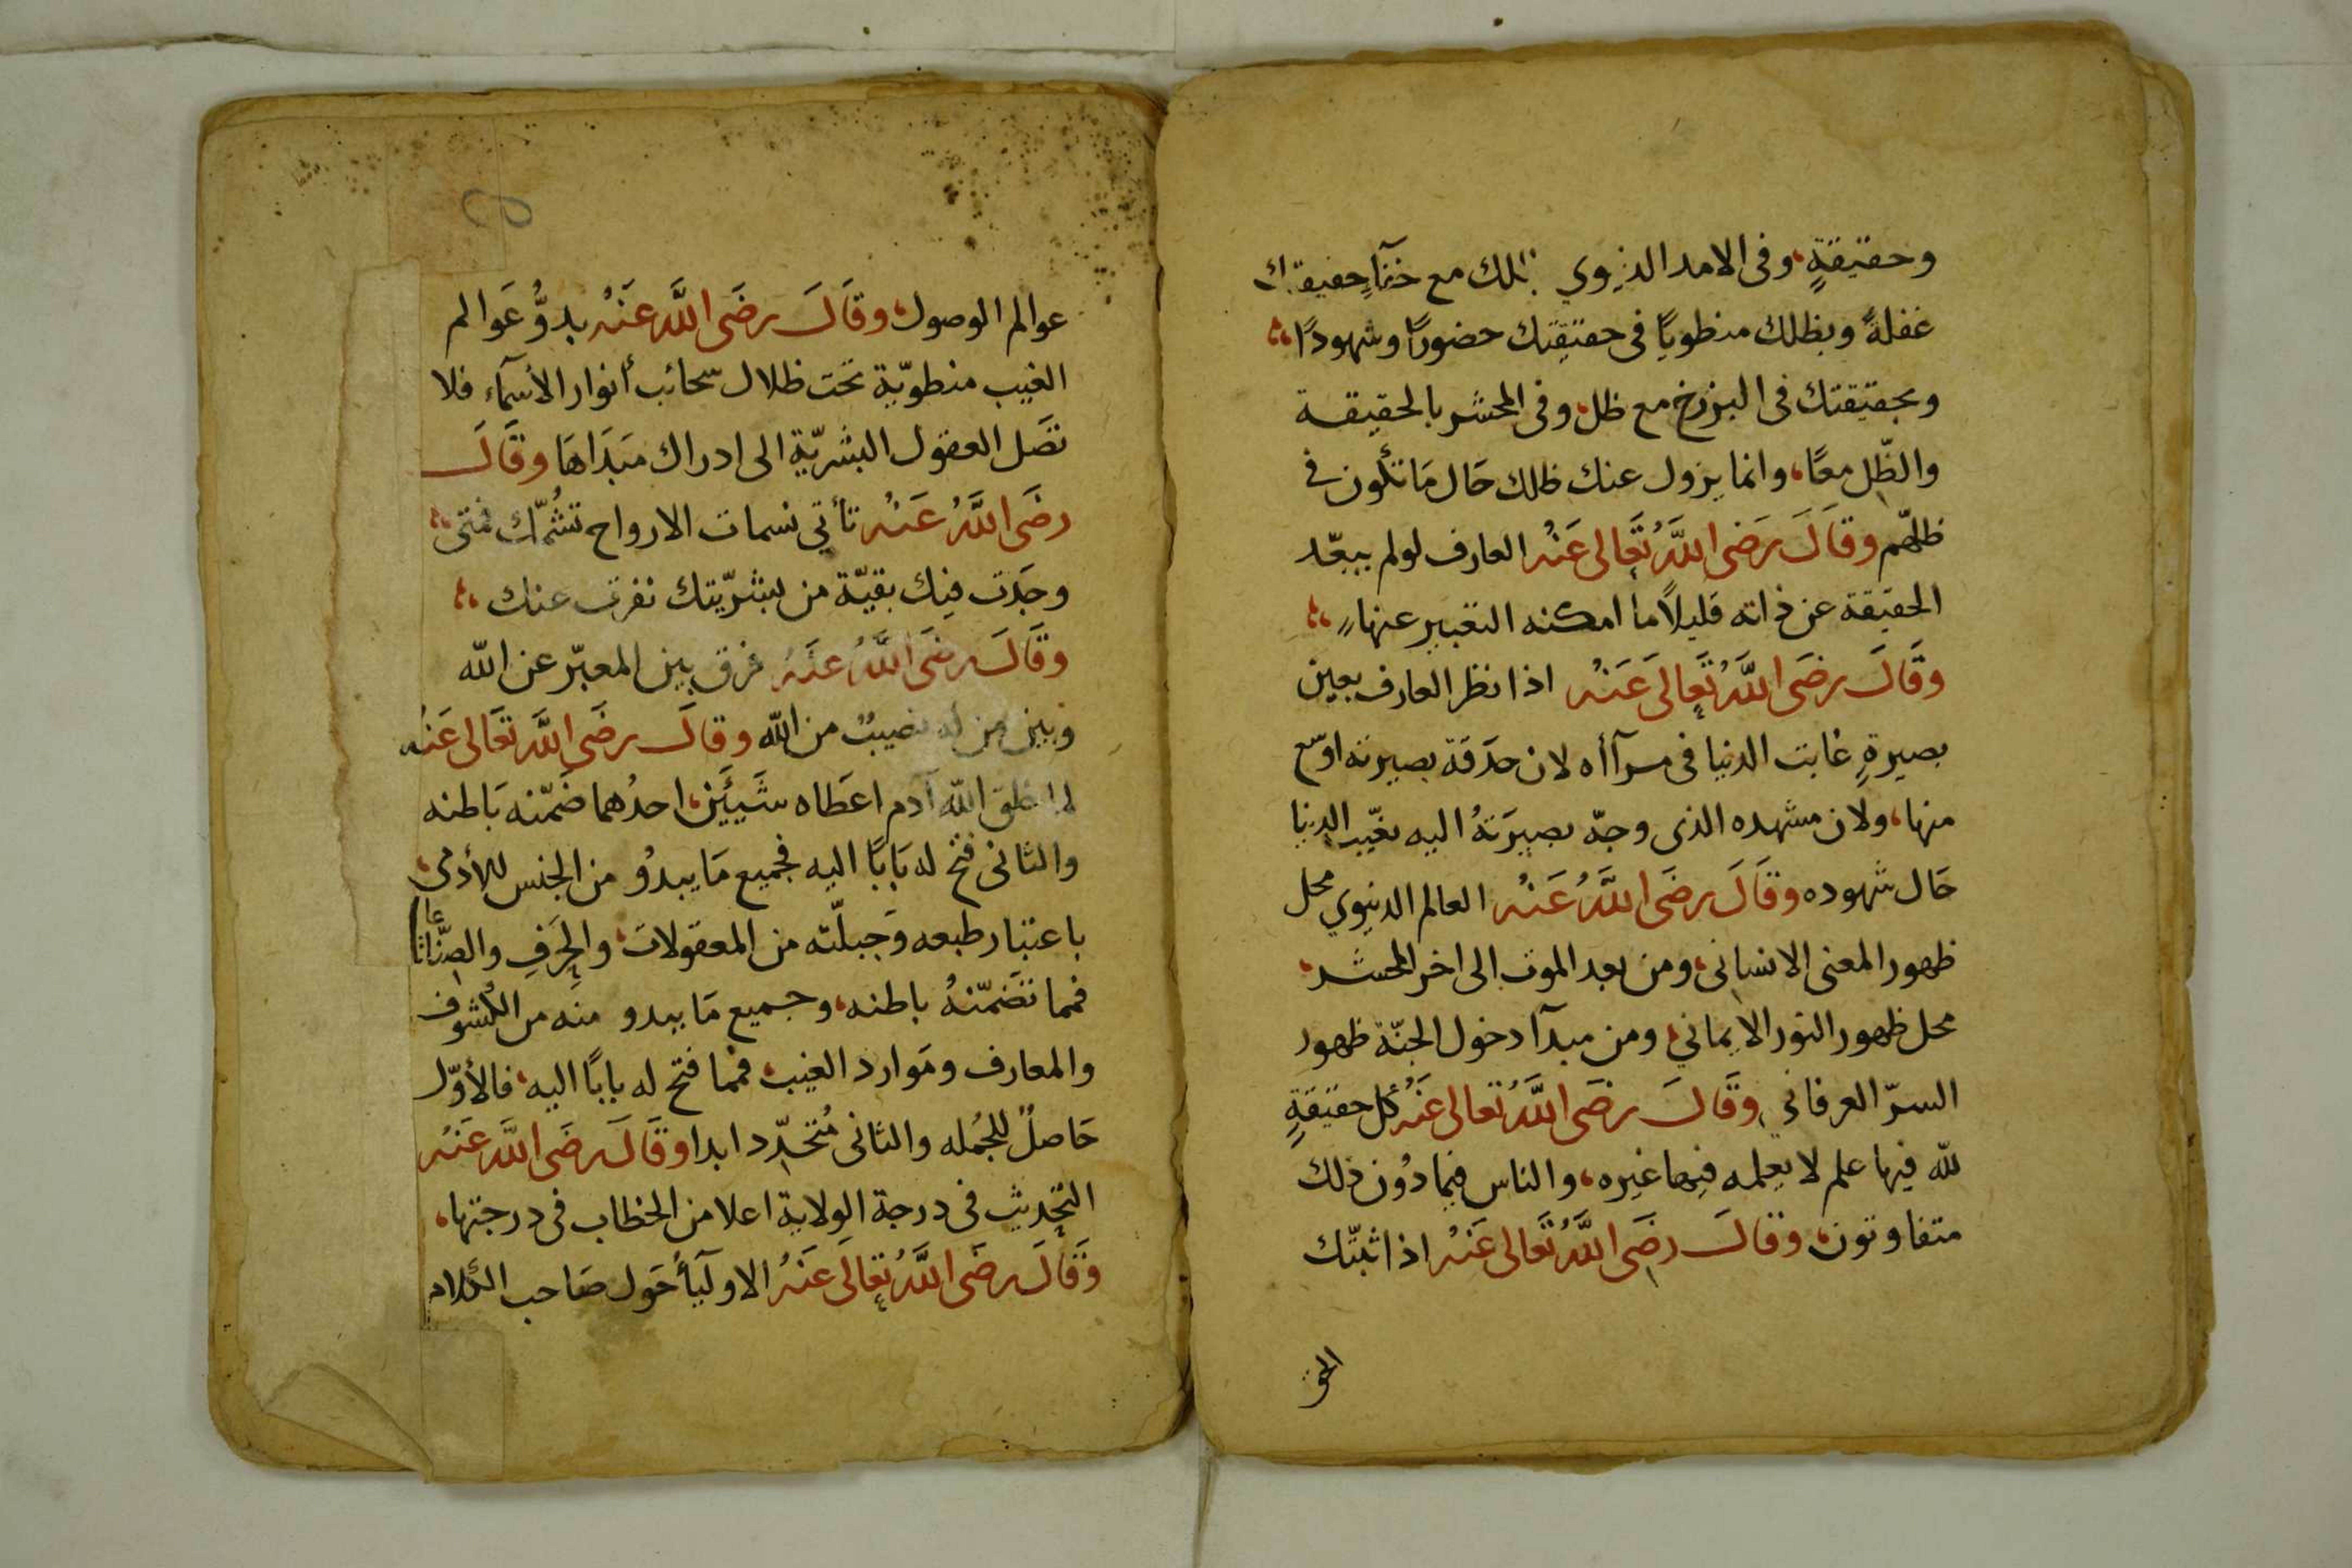 وحقيقةٍ، وفى الامد الدنيوي بظلك مع خفآءِ حقيقتك
غفلةً وبظلك منطويًا فى حقيقتك حضورًا وشهودًا
وبحقيقتك فى البرزخ مع ظل، وفى المحشر بالحقيقة
والظّل معًا، وانما يزول عنك ظلك حَال مَا تكون في
ظلهّم وقَالَ رَضَى اللَّهُ تَعَالى عَنْه العارف لولم يبعّد
الحقيقة عن ذاته قليلاً ما امكنه التعبير عنها
وقَالَ رضَى اللَّهُ تَعَالَى عَنْه اذا نظر العارف بعين
بصيرةٍ غابت الدنيا فى مرآأه لان حَدَقة بصيرته اوسع
منها، ولان مشهده الذى وجّه بصيرَتهُ اليه يغيّب الدنيا
حَال شهوده وقَالَ رضَى اللَّهُ عَنْه العالم الدنيوي محل
ظهور المعنى الانسانى، ومن بعد الموت الى اخر المحشر،
محل ظهور النور الايماني، ومن مبدآ دخول الجنّة ظهور
السرّ العرفاني، وقَالَ رضَى اللَّهُ تعالى عَنْهُ كل حقيقةٍ
لله فيها علم لا يعلمه فيها غيره، والناس فيما دُون ذلك
متفاوتون، وقالَ رضَى اللَّهُ تَعَالى عَنْهُ اذا ثبتّك
الحق
عوالم الوصول، وقَالَ رضَى اللَّه عَنْه بدوُّ عَوالم
الغيب منطويّة تحت ظلال سحائب أنوار الأسمآء فلا
تصَل العقول البشريّة الى ادراك مَبدَاهَا وقَالَ
رضَى اللَّهُ عَنْه تأتي نسمات الارواح تشُمّك فمتى
وجَدت فيك بقيّة من بشرّيتك نفرت عنك
وقَالَ رضَى اللَّهُ عَنْهُ فرق بين المعبّر عن الله
وبين من له نصيبٌ من الله وقالَ رضَى اللَّه تعَالى عَنْه
لما خلق الله آدم اعطَاه شَيئَين، احدُهما ضَمّنه بَاطنه
والثانى فتح له بَابًا اليه فجميع مَا يبدوُ من الجنس للأدمى،
باعتبار طبعه وَجبلّته من المعقولات، والحِرَفِ والصّناعات
فمما تضَمّنهُ باطنه، وجميع مَا يبدو منه من الكُشوف
والمعارف ومَوارد الغيب، فمما فتح له بابًا اليه، فالأوّل
حَاصلٌ للجُمله والثانى مُتجدّد ابدا وقَالَ رضَى اللَّه عَنْه
التحديث فى درجة الولاية اعلا من الخطاب فى درجتها،
وَقَالَ رضَى اللَّهُ تعَالَى عَنْهُ الاوليَآ حَول صَاحب الكلام